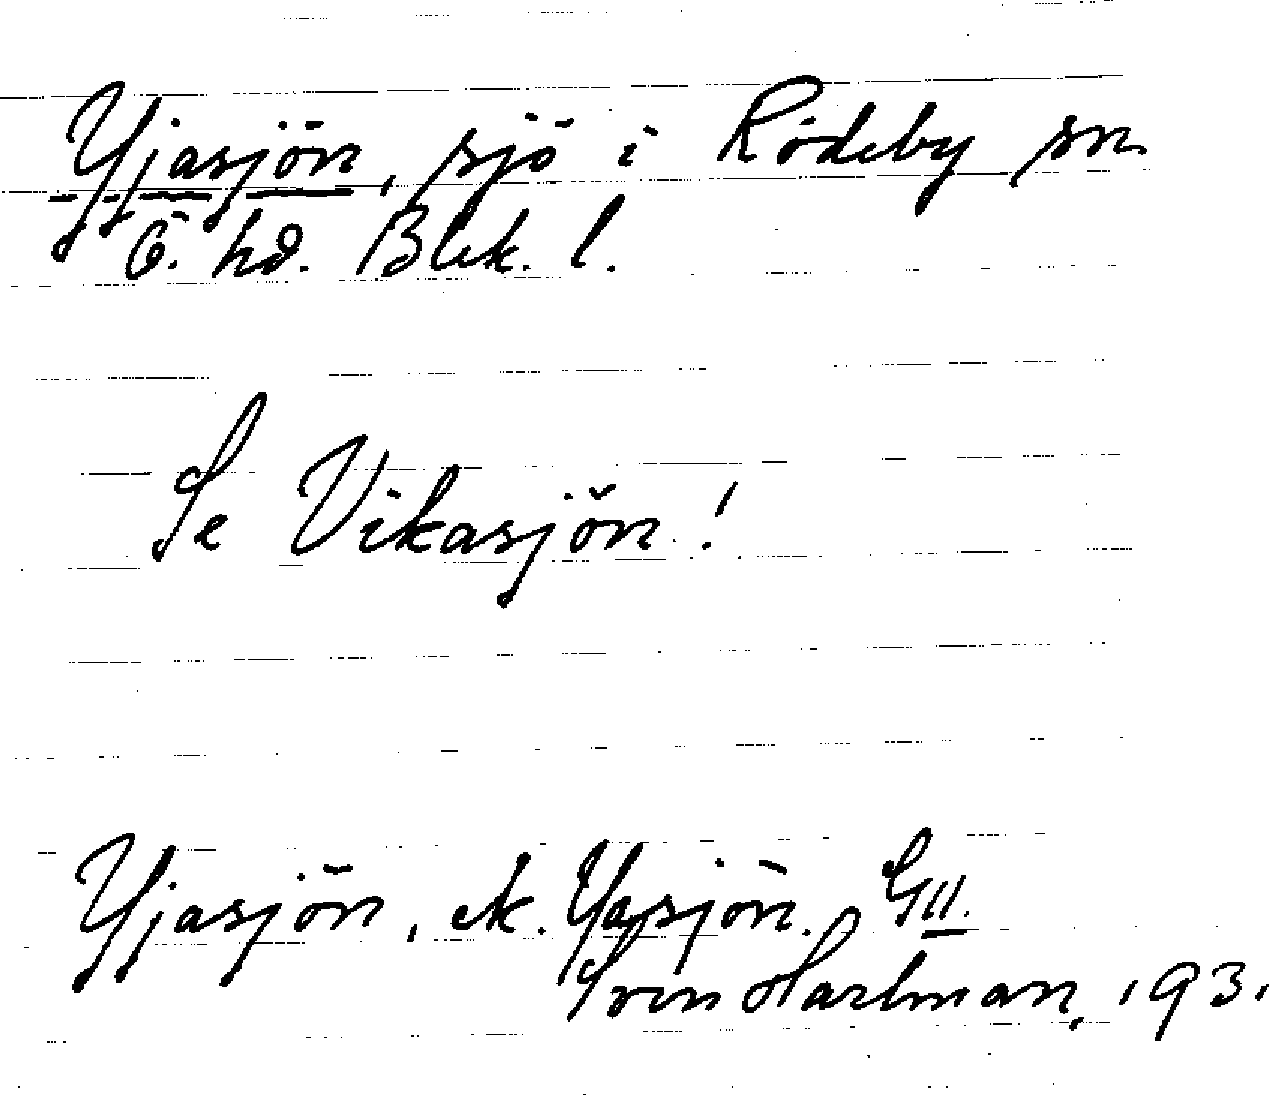 Yjasjön, sjö i Rödeby sn.
Ö. hd. Blek. l.
Se Vikasjön!
Yjasjön, ek. Yasjön. GII.
Sven Hartman, 1931